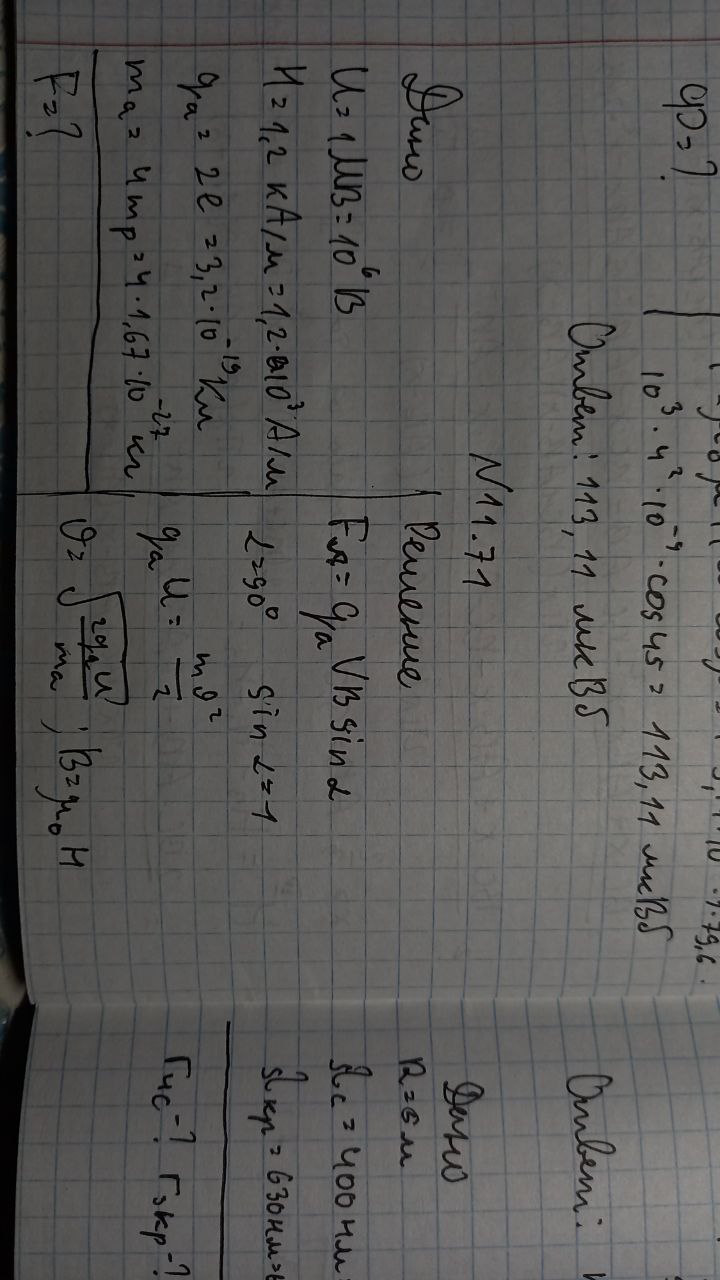 φ=?
10³·4²·10⁻⁴·cos45=113,11 мкВб
Ответ: 113,11 мкВб
N11.71
Дано
U=1МВ=10⁶В
H=1,2 кА/м=1,2·10³А/м
qα=2e=3,2·10⁻¹⁹Кл
mα=4mp=4·1,67·10⁻²⁷ кг
F=?
Решение
Fл=qαVBsinα
α=90° sinα=1
qαU=mυ²/2
υ=√(2qαU/mα); B=μ₀H
Ответ:
Дано
R=5м
λс=400нм=
λкр=630нм=
r₄с-? r₃кр-?